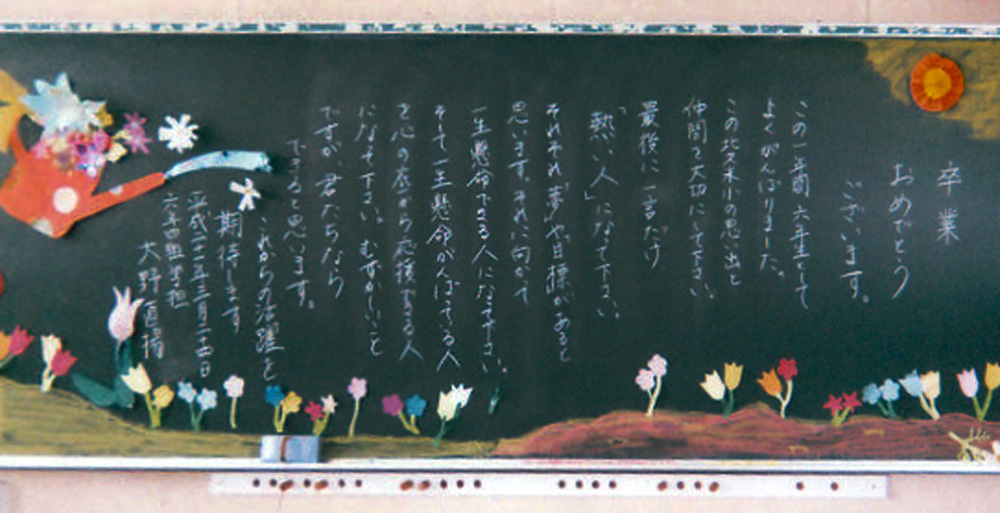 卒業
おめでとう
ございます。
この一年間 六年生として
よくがんばりました。
この北久米小の思い出と
仲間を大切にして下さい。
最後に一言だけ
「熱い人」になって下さい。
それぞれ夢や目標があると
思います。それに向かって
一生懸命できる人になって下さい。
そして一生懸命がんばってる人
を心の底から応援する人
になって下さい。むずかしいこと
ですが、君たちなら
できると思います。
これからの活躍を
期待します
平成二十一年三月二十四日
六年四組 担担
大野直陽